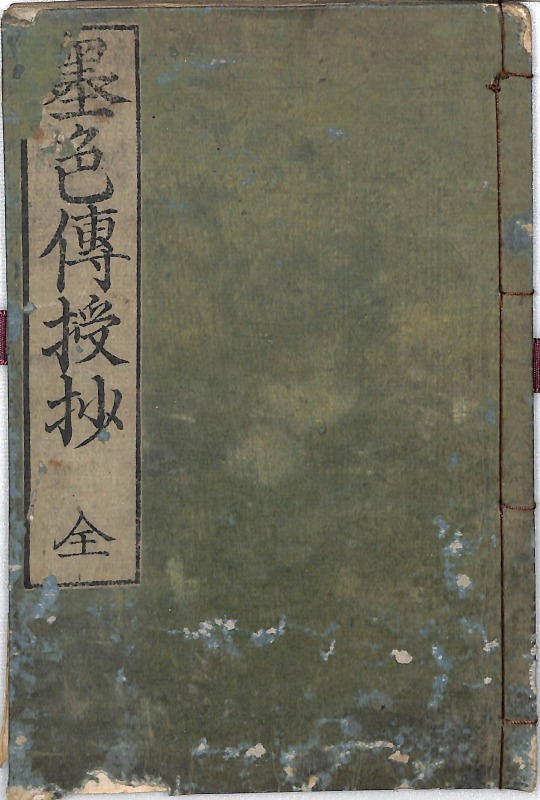 墨色傳授抄
全